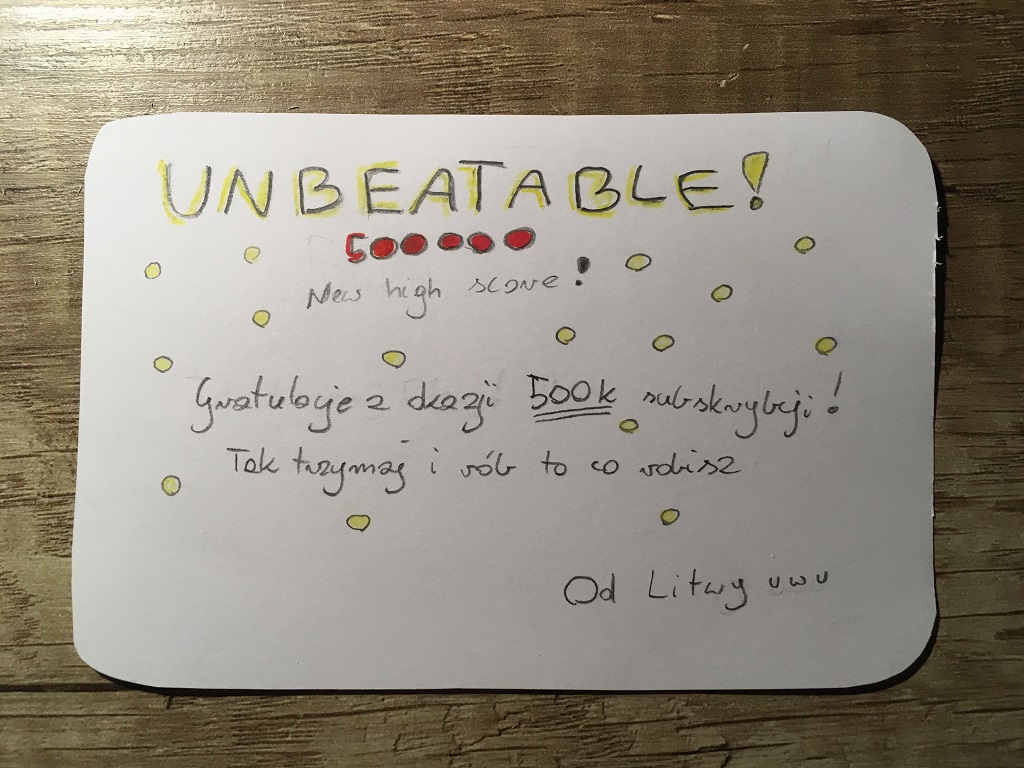 UNBEATABLE!
500000
New high score!
Gratulacje z okazji 500k subskrybcji!
Tak trzymaj i rób to co robisz
Od Litwy uwu